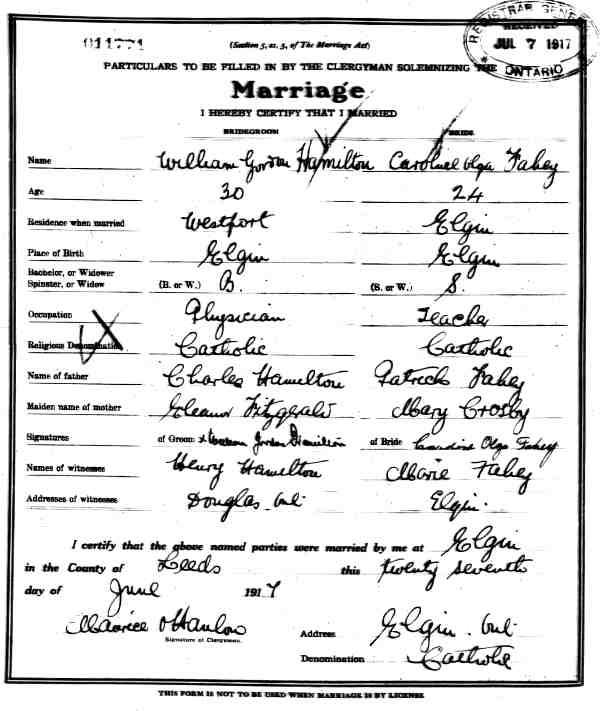 011771
(Section 5, ss. 3, of The Marriage Act)
REGISTRAR GENERAL
RECEIVED
JUL 7 1917
ONTARIO
PARTICULARS TO BE FILLED IN BY THE CLERGYMAN SOLEMNIZING THE
Marriage
I HEREBY CERTIFY THAT I MARRIED
BRIDEGROOM BRIDE
Name William Gordon Hamilton Caroline Olga Fahey
Age 30 24
Residence when married Westport Elgin
Place of Birth Elgin Elgin
Bachelor, or Widower
Spinster, or Widow (B. or W.) B. (S. or W.) S.
Occupation Physician Teacher
Religious Denomination Catholic Catholic
Name of father Charles Hamilton Patrick Fahey
Maiden name of mother Eleanor Fitzgerald Mary Crosby
Signatures of Groom William Gordon Hamilton of Bride Caroline Olga Fahey
Names of witnesses Henry Hamilton Marie Fahey
Addresses of witnesses Douglas Ont. Elgin.
I certify that the above named parties were married by me at Elgin
in the County of Leeds this twenty seventh
day of June 1917
Maurice O'Hanlon Address Elgin. Ont.
Signature of Clergyman.
Denomination Catholic
THIS FORM IS NOT TO BE USED WHEN MARRIAGE IS BY LICENSE